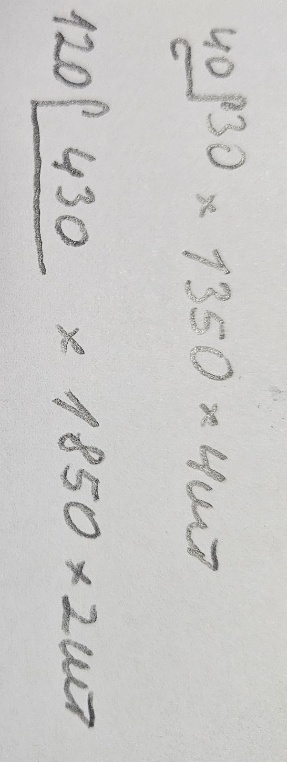 40 30 x 1350 x 4шт
120 430 x 1850 x 2шт